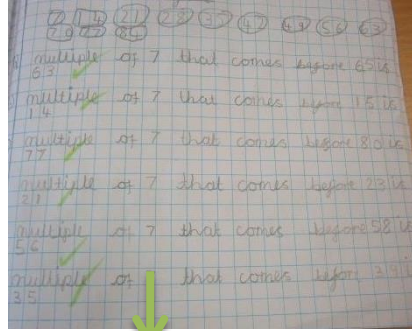 7 14 21 28 35 42 49 56 63
70 77 84
multiple of 7 that comes before 65 is
63
multiple of 7 that comes before 15 is
14
multiple of 7 that comes before 80 is
77
multiple of 7 that comes before 23 is
21
multiple of 7 that comes before 58 is
56
multiple of that comes before 39 is
35